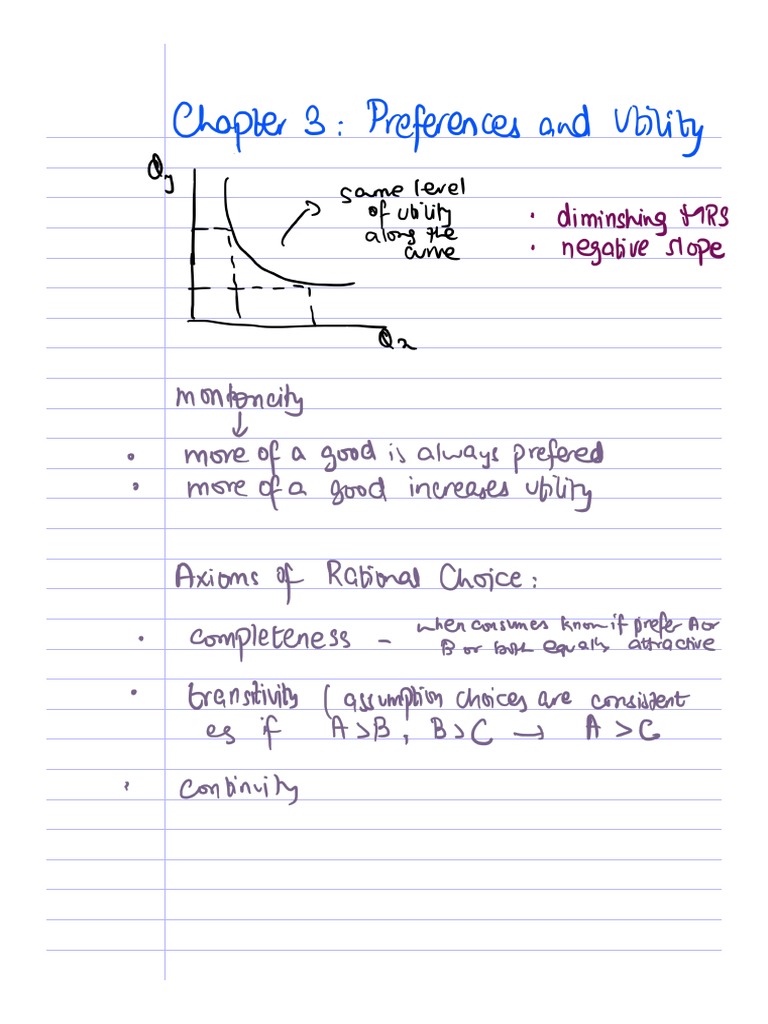 Chapter 3: Preferences and Utility
Qy
same level
of utility
along the
curve
• diminshing MRS
• negative slope
Qx
montoncity
↓
• more of a good is always prefered
• more of a good increases utility
Axioms of Rational Choice:
• completeness - when consumes know if prefer A or
B or both equally attractive
• transitivity ( assumption choices are consistent
eg if A>B, B>C → A>C
• continuity